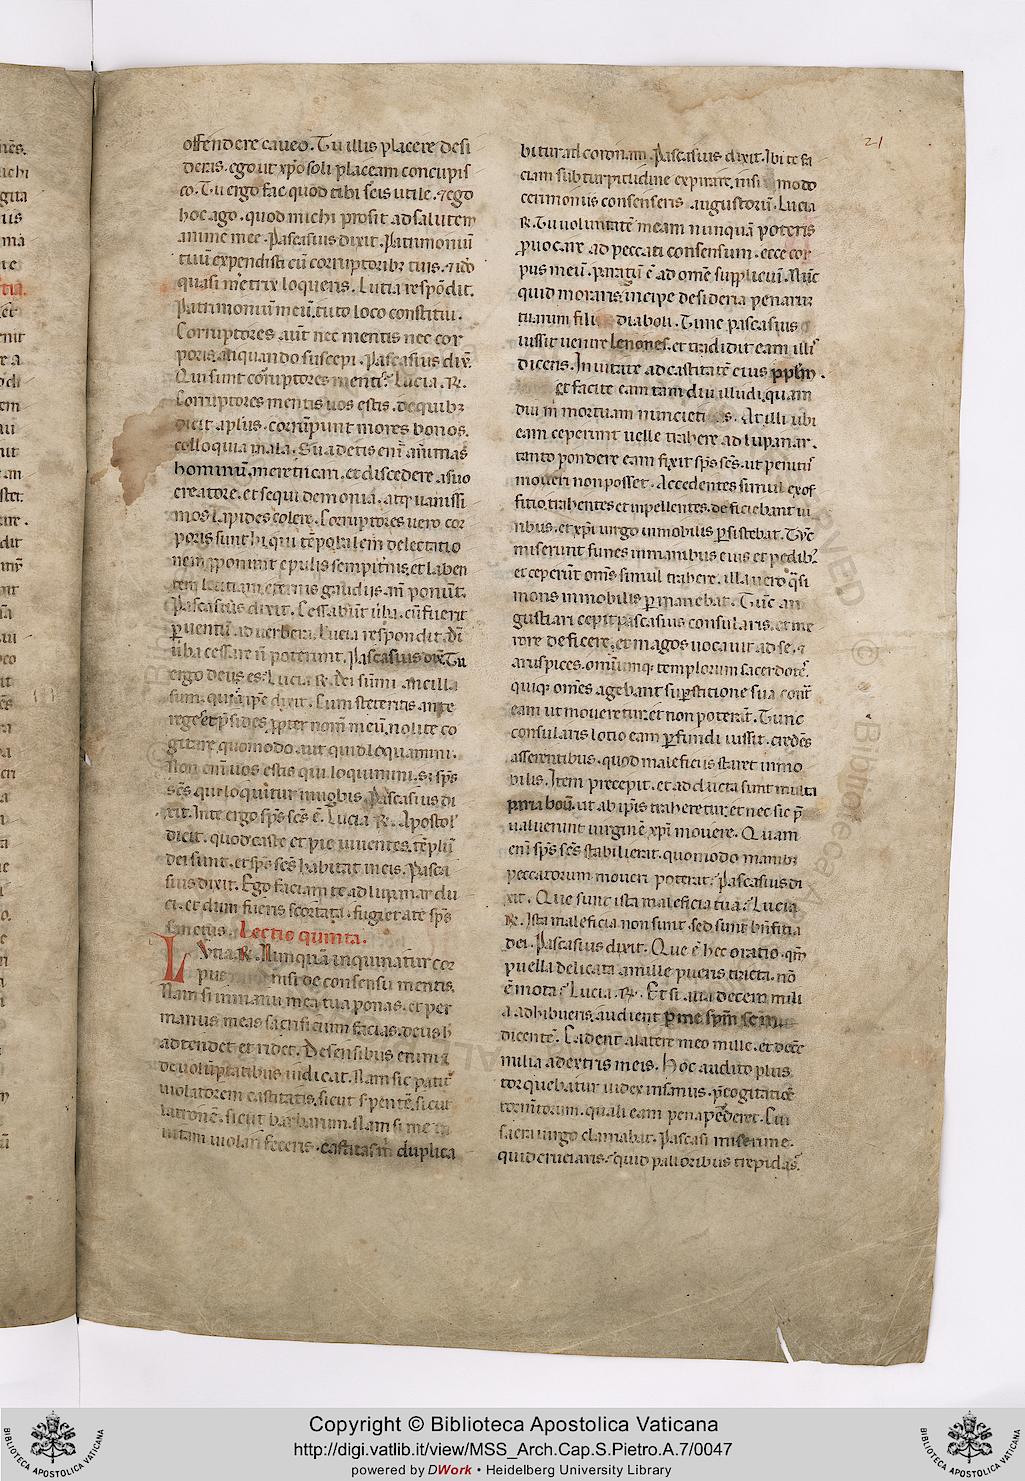 21
offendere caveo. Tu illis placere desi
deras. ego ut xp̄o soli placeam concupis
co. Tu ergo fac quod tibi scis utile. ⁊ ego
hoc ago. quod michi prosit ad salutem
anime mee. Pascasius dixit. Patrimoniū
tuū expendisti cū corruptoribꝫ tuis. ⁊ iđo
quasi meretrix loqueris. Lucia respōdit.
Patrimoniū meū. tuto loco constitui.
Corruptores aut̄ nec mentis nec cor
poris aliquando suscepi. Pascasius dix̄.
Qui sunt corruptores mentis? Lucia. R̄.
Corruptores mentis vos estis. de quibꝫ
dicit apl̄us. corrūpunt mores bonos.
colloquia mala. Suadetis eni animas
hominū. meretricari. et discedere a suo
creatore. et sequi demonia. atqꝫ vanissi
mos lapides colere. Corruptores vero cor
poris sunt hi qui tēporalem delectatio
nem p̄ponunt epulis sempiternis. et laben
tem letitiam eternis gaudiis an̄ ponunt.
Pascasius dixit. Cessabūt v̄ba. cū fuerit
ꝑventū ad verbera. Lucia respondit. dī
v̄ba cessare n̄ poterunt. Pascasius dix̄. Tu
ergo deus es? Lucia R̄. Dei sūmi ancilla
sum. quia ip̄e dixit. Cum steteritis ante
reges et p̄sides ꝓpter nom̄ meū. nolite co
gitare quomodo aut quid loquamini.
Non eni vos estis qui loquimini. s; sp̄s
sc̄s. qui loquitur in vobis. Pascasius di
xit. In te ergo sp̄s sc̄s ē. Lucia R̄. Apostol'
dicit. quod caste et pie viventes. tēplū
dei sunt. et sp̄s sc̄s habitat in eis. Pasca
sius dixit. Ego faciam te ad lupanar du
ci. et dum fueris scortata. fugiet a te sp̄s
sanctus. Lectio quinta.
Lucia. R̄. Nunquā inquinatur cor
pus nisi de consensu mentis.
Nam si in manu mea tua ponas. et per
manus meas sacrificium facias. deus h̄
adtendet et ridet. De sensibus enim ⁊
de volūptatibus iudicat. Nam sic patit̄
violatorem castitatis. sicut s̄pentē. sicut
latronē. sicut barbarum. Nam si me in
vitam violari feceris. castitas m̄ duplica
bitur ad coronam. Pascasius dixit. Ibi te fa
ciam sub turpitudine expirare. nisi modo
cerimoniis consenseris augustorū. Lucia
R̄. Tu voluntatē meam nunquā poteris
ꝓvocare ad peccati consensum. ecce cor
pus meū. paratū ē ad omē suppliciū. Nūc
quid moraris. incipe desideria penarū
tuarum fili diaboli. Tunc pascasius
iussit venire lenones. et tradidit eam illis
dicens. Invitate ad castitatē eius pplm̄.
et facite eam tam diu illudi. quam
diu m̄ mortuam nuncietis. At illi ubi
eam ceperunt velle trahere ad lupanar.
tanto pondere eam fixit sp̄s sc̄s. ut penitus
moveri non posset. Accedentes simul ex of
fitio. trahentes et inpellentes. deficiebant vi
ribus. et xp̄i virgo inmobilis ꝑsistebat. Tūc
miserunt funes in manibus eius et pedibꝫ
et ceperūt om̄s simul trahere. illa vero q̄si
mons inmobilis ꝑmanebat. Tūc an
gustiari cepit pascasius consularis. et me
rore deficere. et magos vocavit ad se. ⁊
aruspices. omniumqꝫ templorum sacerdotes.
quiqꝫ omēs agebant suꝑstitione sua contra
eam ut moveretur. et non poterat. Tunc
consularis lotio eam ꝑfundi iussit. credēs
asserentibus. quod maleficiis staret inmo
bilis. Item precepit. et adducta sunt multa
paria boū. ut ab ip̄is traheretur. et nec sic p̄
valuerunt virginē xp̄i movere. Quam
eni sp̄s sc̄s stabilierat. quomodo manibꝫ
peccatorum moveri poterat? Pascasius di
xit. Que sunt ista maleficia tua? Lucia
R̄. Ista maleficia non sunt. sed sunt bn̄fitia
dei. Pascasius dixit. Que ē hec oratio. qm̄
puella delicata a mille pueris tracta. nō
ē mota? Lucia. R̄. Et si alia decem mili
a adhibueris. audient ꝑ me sp̄m sc̄m
dicentē. Cadent a latere meo mille. et decē
milia a dextris meis. Hoc audito plus
torquebatur iudex insanus. p̄cogitatiōē
torm̄torum. quali eam pena ꝑderet. Cui
sacra virgo clamabat. Pascasi miserrime.
quid cruciaris. quid palloribus trepidas?
Copyright © Biblioteca Apostolica Vaticana
http://digi.vatlib.it/view/MSS_Arch.Cap.S.Pietro.A.7/0047
powered by DWork • Heidelberg University Library
BIBLIOTECA APOSTOLICA VATICANA
BIBLIOTECA APOSTOLICA VATICANA